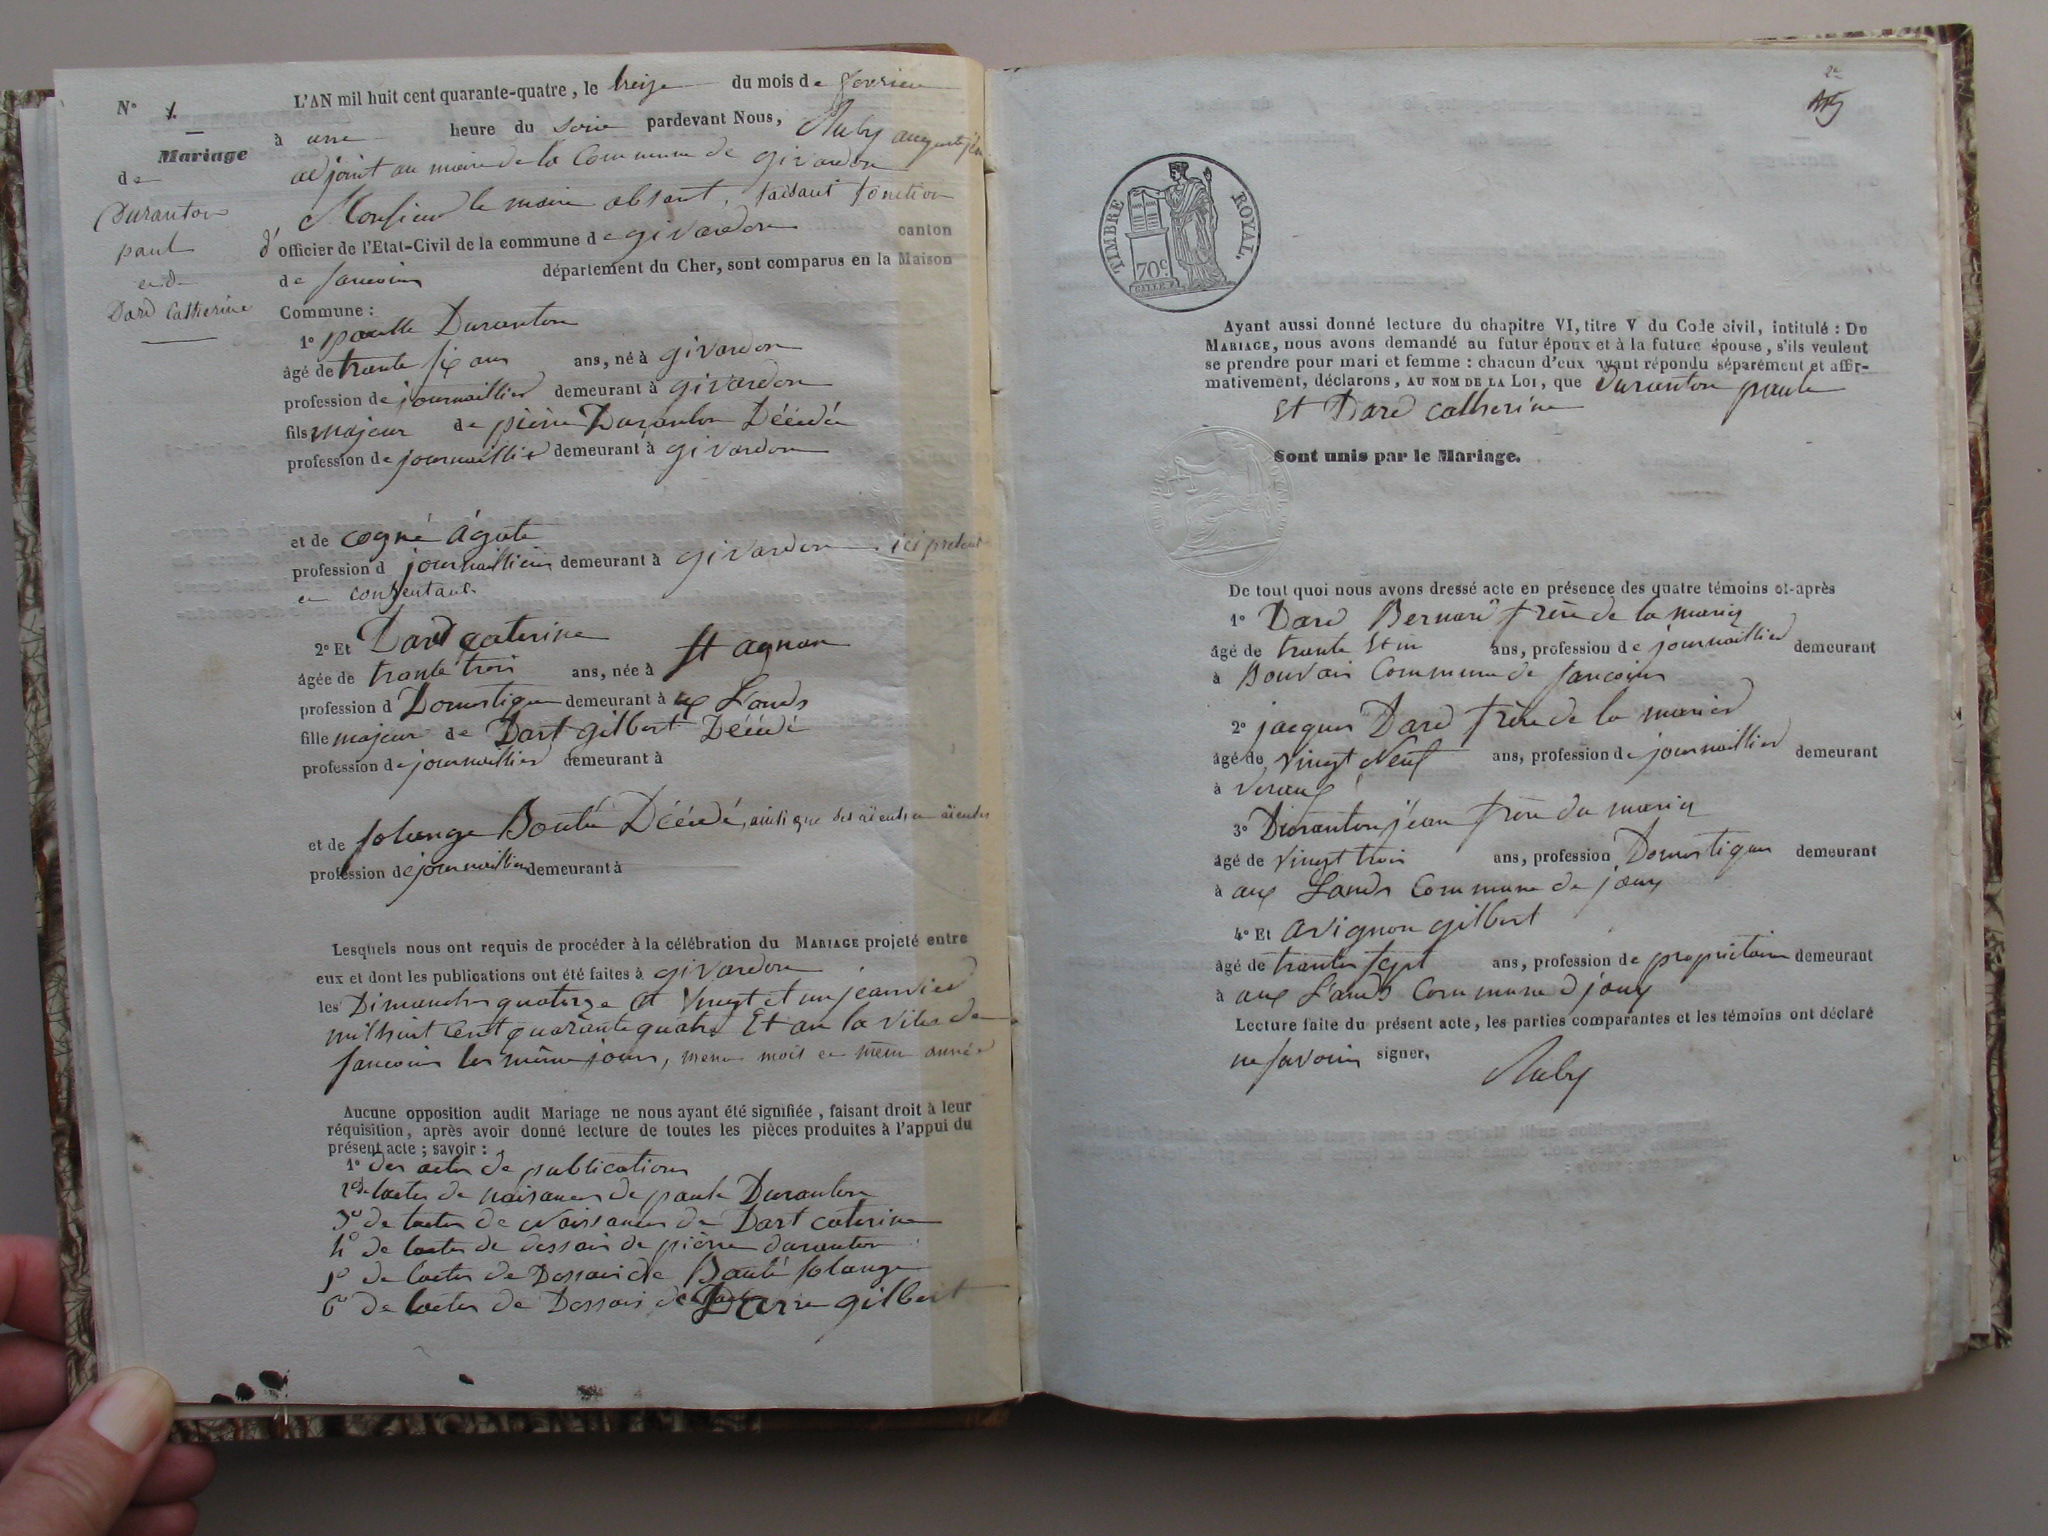 N° 1.
Mariage
de
Duranton
paul
et de
Dard Catherine
L'AN mil huit cent quarante-quatre, le treize du mois de fevrier
à une heure du soir pardevant Nous, Auby auguste
adjoint au maire de la Commune de givardon
Monsieur le maire absant, faisant fonction
d'officier de l'Etat-Civil de la commune de givardon canton
de sancoin département du Cher, sont comparus en la Maison
Commune :
1° paulle Duranton
âgé de trante six ans ans, né à givardon
profession de journaillier demeurant à givardon
fils majeur de pièrre Duranton Décédé
profession de journaillier demeurant à givardon
et de cogné ágate
profession d journaillière demeurant à givardon ici presente
et consentant
2° Et Dart caterine
âgée de trante trois ans, née à St agnan
profession d Domestique demeurant à aux Lands
fille majeur de Dart gilbert Décédé
profession de journaillier demeurant à
et de solange Bouté Décédé, ainsi que des aïeuls et aïeules
profession de journaillier demeurant à
Lesquels nous ont requis de procéder à la célébration du MARIAGE projeté entre
eux et dont les publications ont été faites à givardon
les Dimanches quatorze et vingt et un jeanvier
mil huit cent quarante quatre Et an la viles de
sancoins les même jours, meme mois et même année
Aucune opposition audit Mariage ne nous ayant été signifiée, faisant droit à leur
réquisition, après avoir donné lecture de toutes les pièces produites à l'appui du
présent acte ; savoir :
1° des actes de publications
2° de lactes de naisances de paule Duranton
3° de lactes de Naissances de Dart caterine
4° de lactes de dessais de pièrre duranton
5° de lactes de Dessais de Bouté solange
6° de lactes de Dessais de gilbert
2e
TIMBRE ROYAL.
70c
Ayant aussi donné lecture du chapitre VI, titre V du Code civil, intitulé : DU
MARIAGE, nous avons demandé au futur époux et à la future épouse, s'ils veulent
se prendre pour mari et femme : chacun d'eux ayant répondu séparément et affir-
mativement, déclarons, AU NOM DE LA LOI, que Duranton paule
et Dard catherine
Sont unis par le Mariage.
De tout quoi nous avons dressé acte en présence des quatre témoins ci-après
1° Dard Bernard frère de la mariez
âgé de trante et un ans, profession de journaillier demeurant
à Bouvais Commune de sancoins
2° jacques Dard frère de la marier
âgé de vingt Neuf ans, profession de journaillier demeurant
à veraux
3° Duranton jean frère du mariez
âgé de vingt trois ans, profession Domestique demeurant
à aux Lands Commune de jouy
4° Et avignon gilbert
âgé de trantes sept ans, profession de propriétaire demeurant
à aux Lands Commune d jouy
Lecture faite du présent acte, les parties comparantes et les témoins ont déclaré
ne savoir signer.
Auby